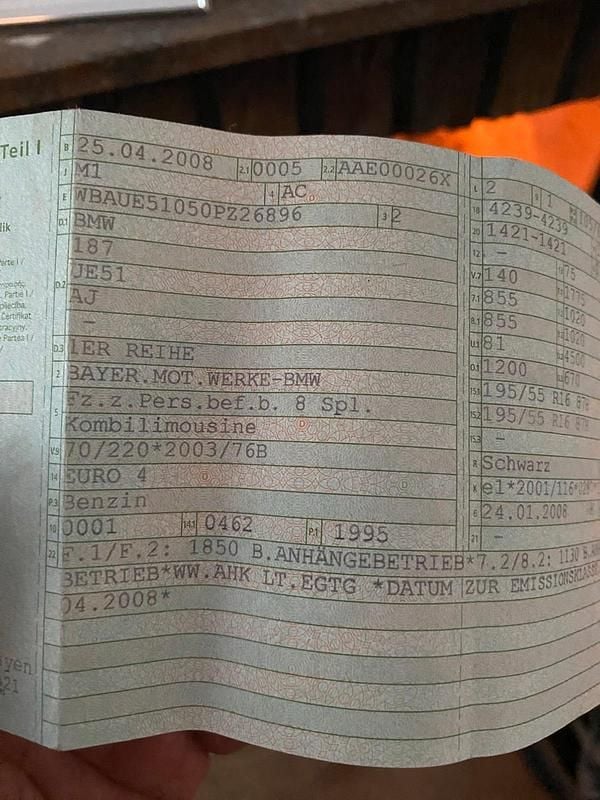 Teil I
B 25.04.2008 2.1 0005 2.2 AAE00026X
J M1 4 AC
E WBAUE51050PZ26896 3 2
D.1 BMW
D.2 187
JE51
AJ
–
D.3 1ER REIHE
2 BAYER.MOT.WERKE-BMW
5 Fz.z.Pers.bef.b. 8 Spl.
Kombilimousine
V.9 70/220*2003/76B
14 EURO 4
P.3 Benzin
10 0001 14.1 0462 P.1 1995
22 F.1/F.2: 1850 B.ANHÄNGEBETRIEB*7.2/8.2: 1130
BETRIEB*WW.AHK LT.EGTG *DATUM ZUR EMISSIONSKLASSE
04.2008*
L 2 9 1
18 4239-4239
20 1421-1421
12 –
V.7 140 75
7.1 855 1020
8.1 855 1020
U.1 81 4500
O.1 1200 670
15.1 195/55 R16
15.2 195/55 R16
15.3 –
R Schwarz
K e1*2001/116*
6 24.01.2008
21 –